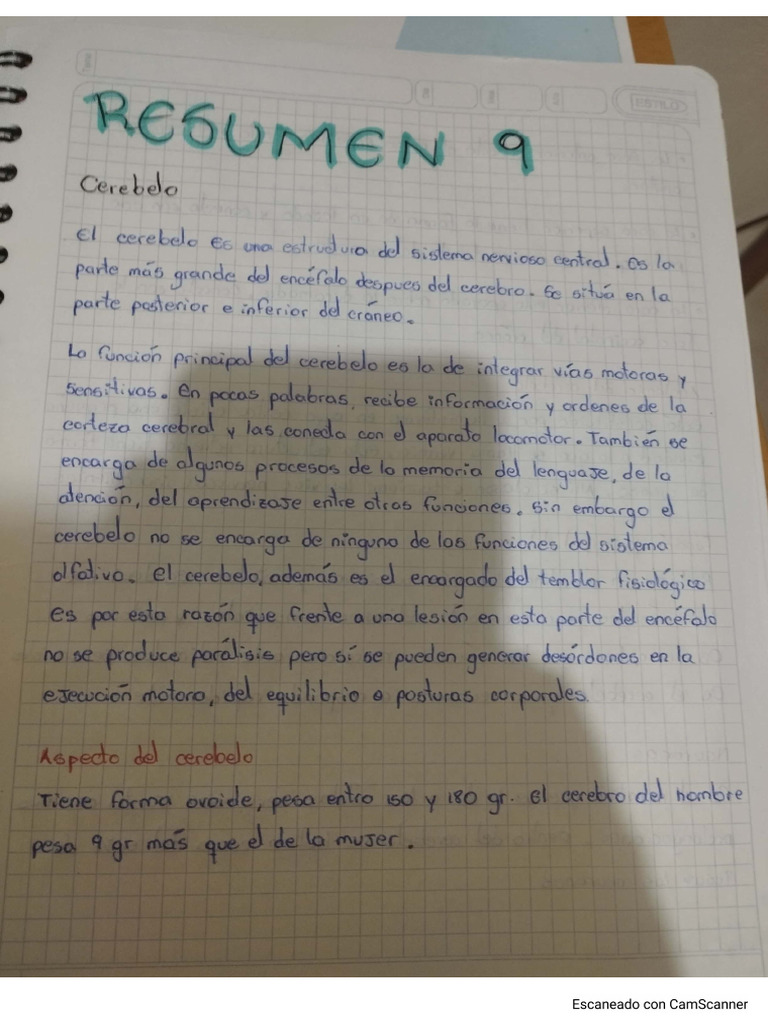 RESUMEN 9
ESTILO
Cerebelo
El cerebelo es una estructura del sistema nervioso central. es la
parte más grande del encéfalo despues del cerebro. Se sitúa en la
parte posterior e inferior del cráneo.
La función principal del cerebelo es la de integrar vías motoras y
sensitivas. en pocas palabras, recibe información y ordenes de la
corteza cerebral y las conecta con el aparato locomotor. También se
encarga de algunos procesos de la memoria del lenguaje, de la
atención, del aprendizaje entre otras funciones. sin embargo el
cerebelo no se encarga de ninguno de las funciones del sistema
olfativo. el cerebelo, además es el encargado del temblor fisiológico
es por esta razón que frente a una lesión en esta parte del encéfalo
no se produce parálisis pero sí se pueden generar desórdones en la
ejecución motora, del equilibrio o posturas corporales.
Aspecto del cerebelo
Tiene forma ovoide, pesa entro 150 y 180 gr. el cerebro del hombre
pesa 9 gr más que el de la mujer.
Escaneado con CamScanner